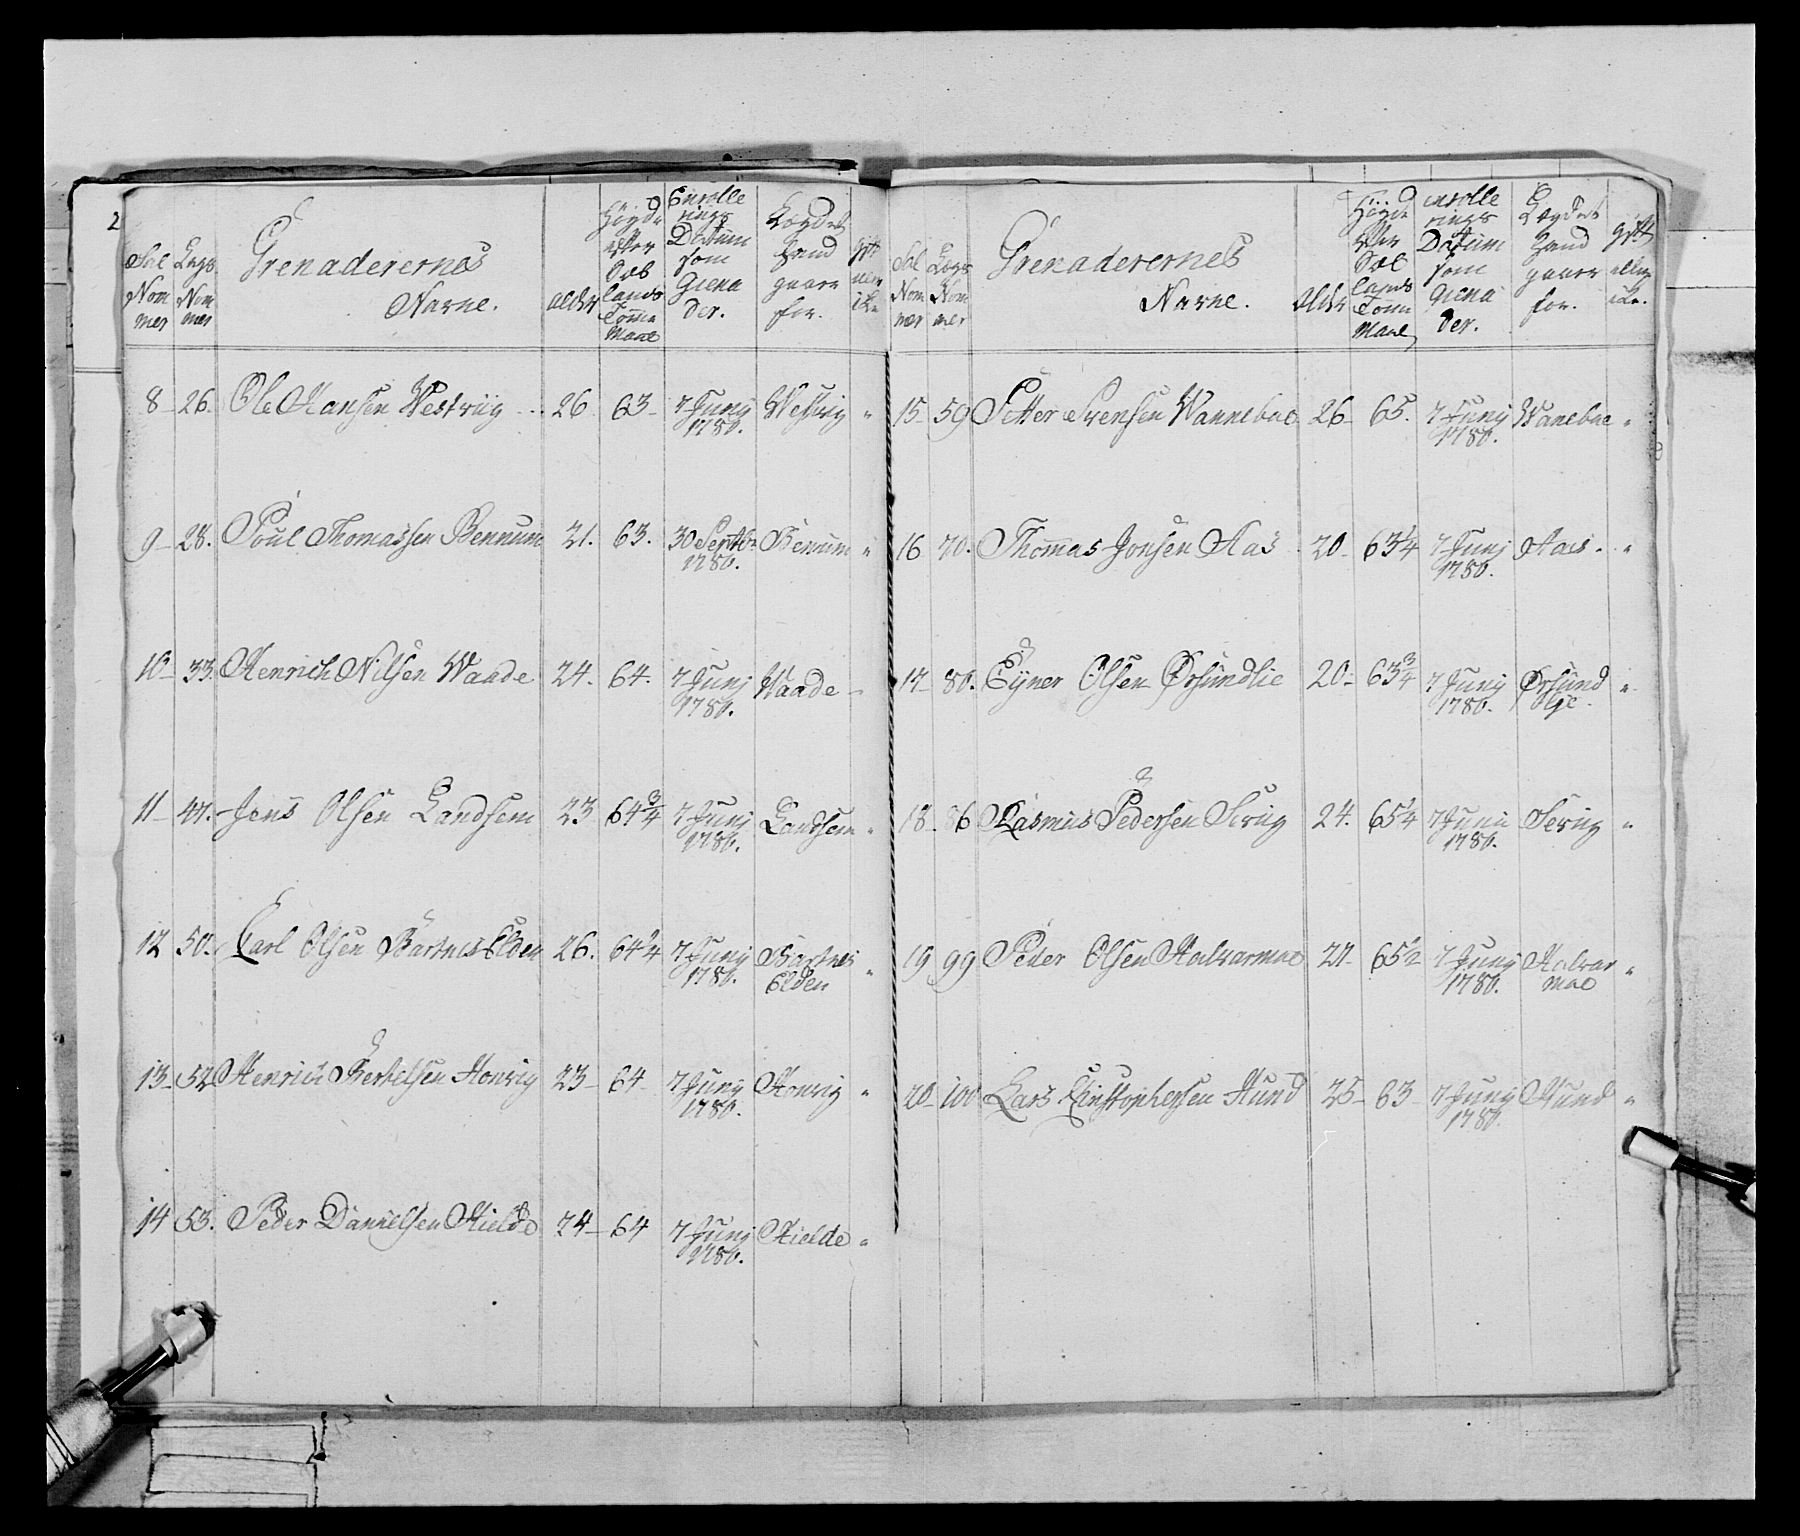 2
Sal Nom mer
Lægs Nom mer
Grenaderernes Navne.
Alder
Høyde efter Siæl lands Tomme Maal
Enrolle rings Datum som Grena der.
Lægdet hand giøre for.
gift eller ikke
8 26. Ole Hansen Westviig 26 63 7 Junj 1780. Westvig "
9 28. Poul Thomassen Bennum 21. 63. 30 Septbr 1780. Benum "
10 33. Henrich Nilsen Waade 24. 64. 7 Junj 1780. Waade
11 41. Jens Olsen Landsem 23 64 3/4 7 Junj 1780. Landsem "
12 50. Carl Olsen Bartnes Elden 26. 64 1/4 7 Junj 1780. Bartnes Elden "
13 52 Henrich Bertelsen Honvig 23 64 7 Junj 1780. Honvig "
14 53. Peder Danielsen Hielde 24 64 7 Junj 1780. Hielde "
Sal Nom mer
Lægs Nom mer
Grenaderernes Navne.
Alder
Høyde efter Siæl lands Tomme Maal
enrolle rings Datum som Grena der.
Lægdet hand giøre for.
gift eller ikke.
15 59 Petter Svensen Wannebae 26 65. 7 Junj 1780. Wanebae "
16 70. Thommas Jonsen Aas 20 63 1/4 7 Junj 1780. Aas "
17 80. Eyner Olsen Ørsundlie 20 63 3/4 7 Junj 1780. Ørsund lje "
18. 86 Rasmus Pedersen Servig 24. 65 1/4 7 Juni 1780. Servig "
19 99 Peder Olsen Halvarmoe 21 65 1/2 7 Junj 1780. Halvar moe "
20 100 Lars Christophersen Hund 25 63 7 Junj 1780. Hund "